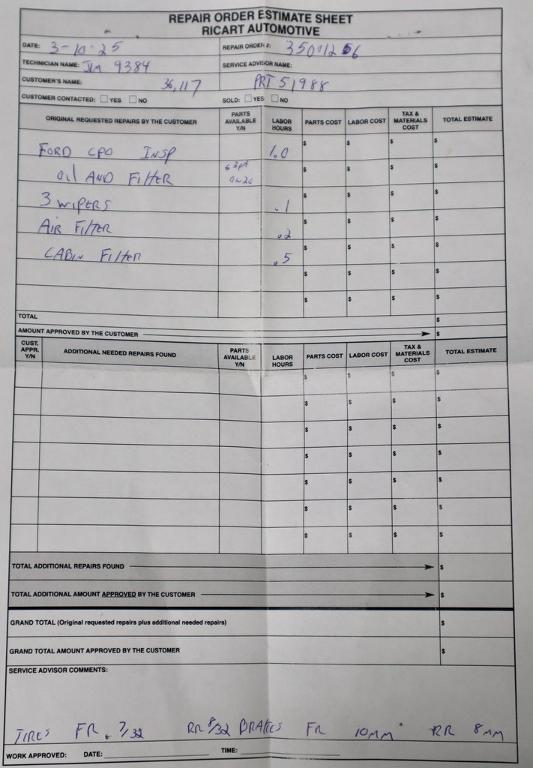 REPAIR ORDER ESTIMATE SHEET
RICART AUTOMOTIVE
DATE: 3-10-25 REPAIR ORDER #: 3501256
TECHNICIAN NAME: Jim 9384 SERVICE ADVISOR NAME:
CUSTOMER'S NAME: 36,117 PRT 51988
CUSTOMER CONTACTED: ☐ YES ☐ NO SOLD: ☐ YES ☐ NO
ORIGINAL REQUESTED REPAIRS BY THE CUSTOMER PARTS AVAILABLE Y/N LABOR HOURS PARTS COST LABOR COST TAX & MATERIALS COST TOTAL ESTIMATE
FORD CPO INSP 1.0 $ $ $ $
Oil AND FilTER 0w20 $ $ $ $
3 WIPERS .1 $ $ $ $
AiR FilTER .2 $ $ $ $
CABin FilTER .5 $ $ $ $
$ $ $ $
$ $ $ $
TOTAL $
AMOUNT APPROVED BY THE CUSTOMER $
CUST. APPR. Y/N ADDITIONAL NEEDED REPAIRS FOUND PARTS AVAILABLE Y/N LABOR HOURS PARTS COST LABOR COST TAX & MATERIALS COST TOTAL ESTIMATE
$ $ $ $
$ $ $ $
$ $ $ $
$ $ $ $
$ $ $ $
$ $ $ $
$ $ $ $
TOTAL ADDITIONAL REPAIRS FOUND $
TOTAL ADDITIONAL AMOUNT APPROVED BY THE CUSTOMER $
GRAND TOTAL (Original requested repairs plus additional needed repairs) $
GRAND TOTAL AMOUNT APPROVED BY THE CUSTOMER $
SERVICE ADVISOR COMMENTS:
TIRES FR 7/32 RR 8/32 BRAKES FR 10mm RR 8mm
WORK APPROVED: DATE: TIME: